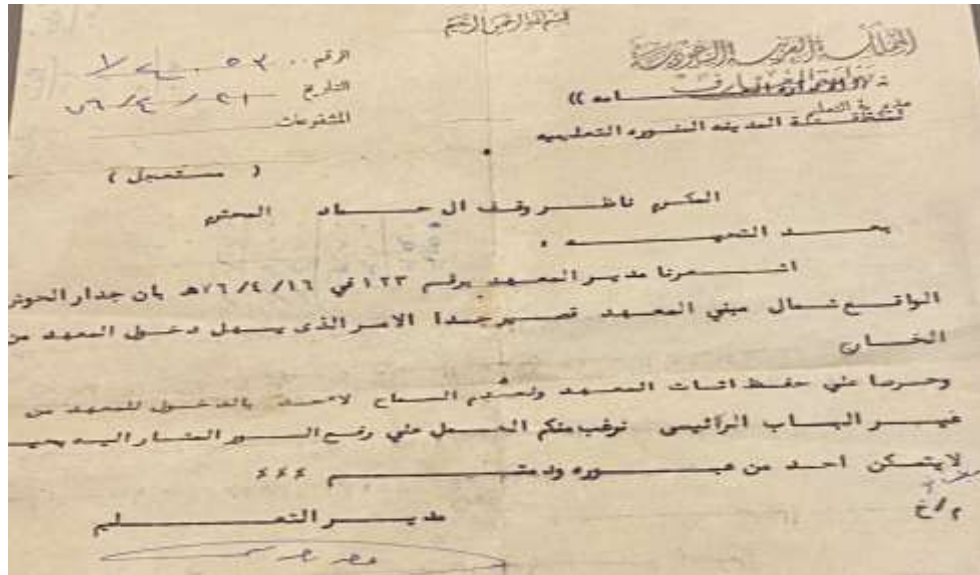 بسم الله الرحمن الرحيم
المملكة العربية السعودية
وزارة المعارف
مديرية التعليم
بمنطقة المدينه المنوره التعليميه
الرقم
التاريخ ٢١ / ٤ / ٧٦
المشفوعات
( مستعجل )
المكرم ناظر وقف ال حماد المحترم
بعد التحيه .
اشعرنا مدير المعهد برقم ١٢٣ في ٧٦/٤/١٦هـ بان جدار الحوش
الواقع شمال مبني المعهد قصير جدا الامر الذي يسهل دخول المعهد من
الخارج
وحرصا علي حفظ اثاث المعهد ولعدم السماح لاحد بالدخول للمعهد من
غير الباب الرائيسى نرغب منكم العمل علي رفع السور المشار اليه بحيث
لايتمكن احد من عبوره ودمتم ٪٪٪
م/خ
مدير التعليم